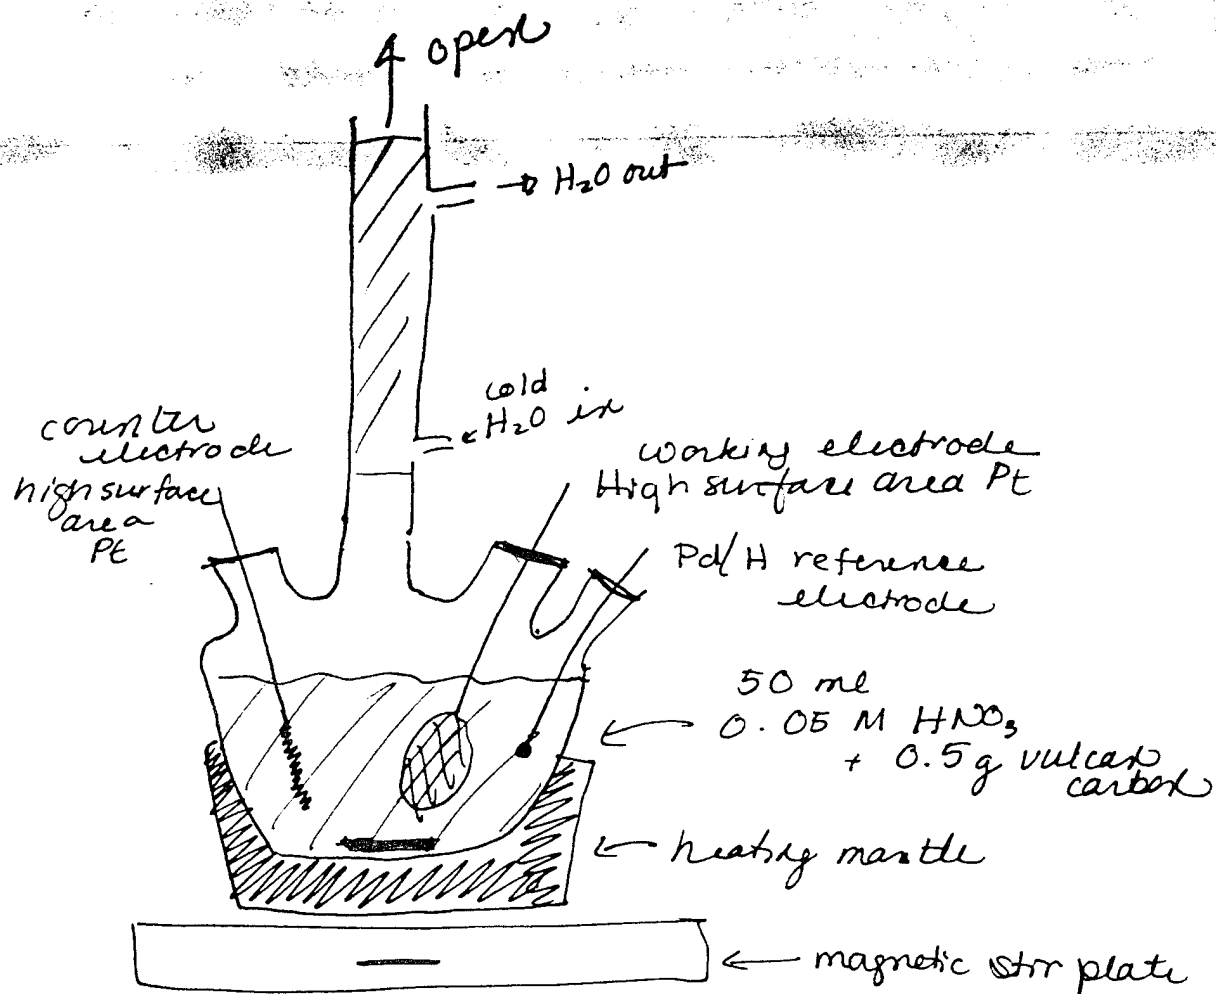 open
H₂O out
cold
H₂O in
counter
electrode
high surface
area
Pt
working electrode
High surface area Pt
Pd/H reference
electrode
50 ml
0.05 M HNO₃
+ 0.5g vulcan
carbon
heating mantle
magnetic stir plate